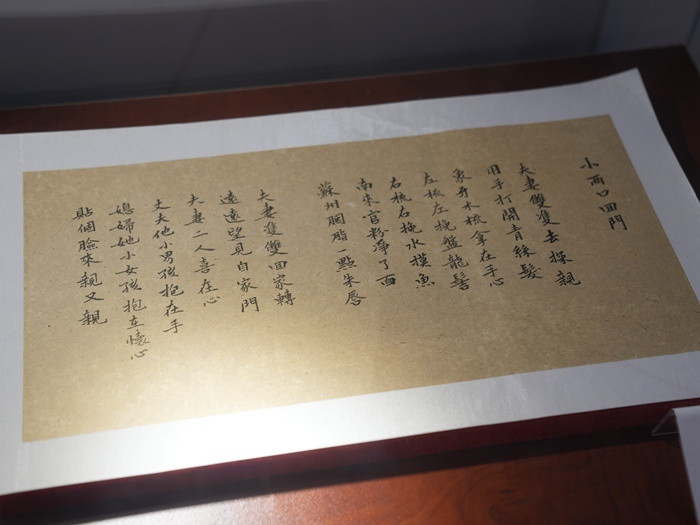 小西口回門
夫妻雙雙去探親
用手打開青絲髮
象牙木梳拿在手心
左梳左挽盤龍髻
右梳右挽水摸魚
南來官粉淨了面
蘇州胭脂一點朱唇
夫妻雙雙回家轉
遠遠望見自家門
夫妻二人喜在心
丈夫他小男孩抱在手
媳婦她小女孩抱在懷心
貼個臉來親又親